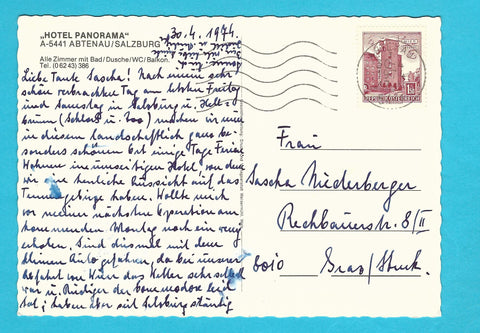 „HOTEL PANORAMA“
A-5441 ABTENAU/SALZBURG
Alle Zimmer mit Bad/Dusche/WC/Balkon.
Tel. (0 62 43) 386
30.4.1974.
Liebe Tante Sascha! Nach einem sehr
schön verbrachten Tag am letzten Freitag
und Samstag in Salzburg u. Hell-
brunn (Schloß u. Zoo) machen wir nun
in diesem landschaftlich ganz be-
sonders schönen Ort einige Tage Ferien
Wohnen im umseitigen Hotel, von dem
wir eine herrliche Aussicht auf das
Tennengebirge haben. Wollte mich
vor meiner nächsten Operation am
kommenden Montag noch ein wenig
erholen. Sind diesmal mit dem
kleinen Auto gefahren, da bei unserer
Abfahrt von Wien das Wetter sehr schlecht
war u. Rüdiger der Commodore leid
tat; haben aber seit Salzburg ständig
REPUBLIK ÖSTERREICH
Frau
Sascha Niederberger
Rechbauerstr. 8/II
8010 Graz/Stmk.